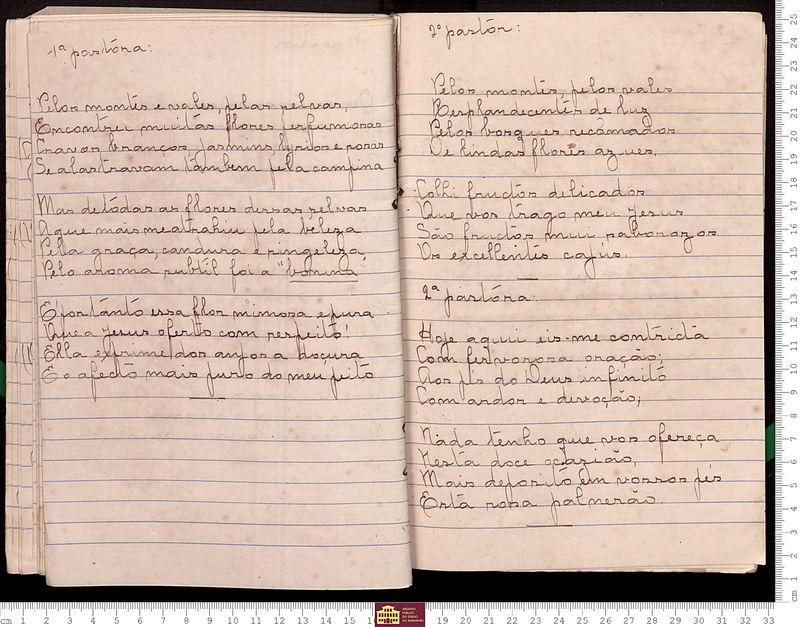 1ª pastora:
Pelos montes e vales, pelas selvas,
Encontrei muitas flores perfumosas
Cravos brancos, jasmins, lyrios e rosas
Se alastravam tambem pela campina
Mas de todas as flores dessas selvas
A que mais me atrahiu pela beleza
Pela graça, candura e singeleza,
Pelo aroma subtil foi a "bonina"
É portanto essa flor mimosa e pura
Que a Jesus oferto com respeito!
Ella exprime dos anjos a doçura
E o afecto mais puro do meu peito
2º pastor:
Pelos montes, pelos vales
Resplandecentes de luz
Pelos bosques recamados
De lindas flores azues,
Colhi fructos delicados
Que vos trago meu Jesus
São fructos mui saborozos
Os excellentes cajús.
2ª pastora:
Hoje aqui eis-me contricta
Com fervorosa oração;
Aos pés do Deus infinito
Com ardor e devoção;
Nada tenho que vos ofereça
Nesta doce ocazião,
Mais deposito em vossos pés
Esta rosa palmerão.